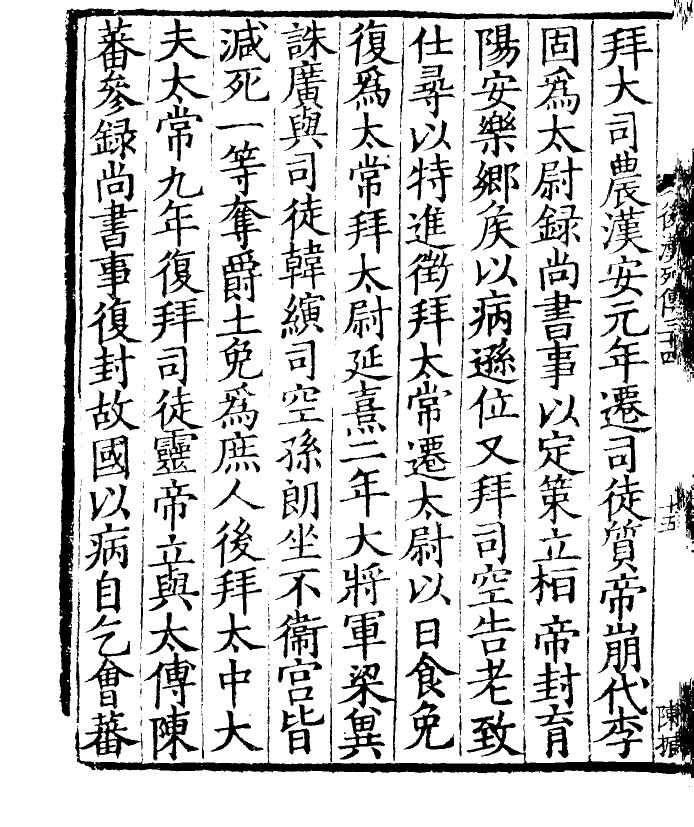 後漢列傳三十四
十五
陳振
拜大司農漢安元年遷司徒質帝崩代李
固爲太尉録尚書事以定策立桓帝封育
陽安樂鄉矦以病遜位又拜司空告老致
仕尋以特進徵拜太常遷太尉以日食免
復爲太常拜太尉延熹二年大將軍梁兾
誅廣與司徒韓縯司空孫朗坐不衞宫皆
減死一等奪爵土免爲庶人後拜太中大
夫太常九年復拜司徒靈帝立與太傅陳
蕃參録尚書事復封故國以病自乞㑹蕃